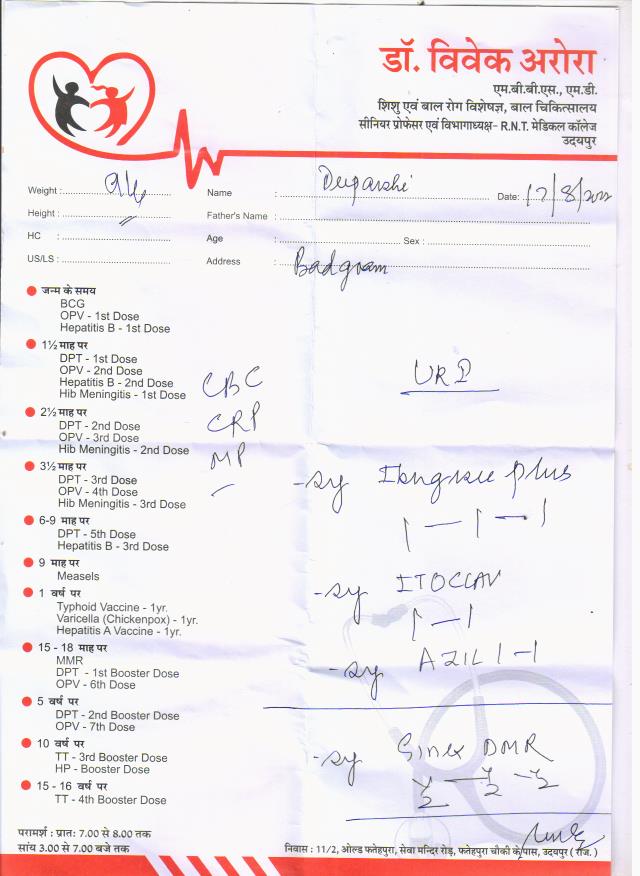 डॉ. विवेक अरोरा
एम.बी.बी.एस., एम.डी.
शिशु एवं बाल रोग विशेषज्ञ, बाल चिकित्सालय
सीनियर प्रोफेसर एवं विभागाध्यक्ष- R.N.T. मेडिकल कॉलेज
उदयपुर
Weight :
Name : Deeparshi Date: 17/8/2022
Height :
Father's Name :
HC :
Age : Sex :
US/LS :
Address : Badgram
जन्म के समय
BCG
OPV - 1st Dose
Hepatitis B - 1st Dose
1½ माह पर
DPT - 1st Dose
OPV - 2nd Dose
Hepatitis B - 2nd Dose
Hib Meningitis - 1st Dose
2½ माह पर
DPT - 2nd Dose
OPV - 3rd Dose
Hib Meningitis - 2nd Dose
3½ माह पर
DPT - 3rd Dose
OPV - 4th Dose
Hib Meningitis - 3rd Dose
6-9 माह पर
DPT - 5th Dose
Hepatitis B - 3rd Dose
9 माह पर
Measels
1 वर्ष पर
Typhoid Vaccine - 1yr.
Varicella (Chickenpox) - 1yr.
Hepatitis A Vaccine - 1yr.
15 - 18 माह पर
MMR
DPT - 1st Booster Dose
OPV - 6th Dose
5 वर्ष पर
DPT - 2nd Booster Dose
OPV - 7th Dose
10 वर्ष पर
TT - 3rd Booster Dose
HP - Booster Dose
15 - 16 वर्ष पर
TT - 4th Booster Dose
CBC
CRP
MP
URI
- sy plus
1 — 1 — 1
- sy ITOCLAV
1 - 1
- sy AZIL 1 - 1
- sy Sinex DMR
½ — ½ — ½
परामर्श : प्रातः 7.00 से 8.00 तक
सांय 3.00 से 7.00 बजे तक
निवास : 11/2, ओल्ड फतेहपुरा, सेवा मन्दिर रोड़, फतेहपुरा चौकी के पास, उदयपुर ( राज. )